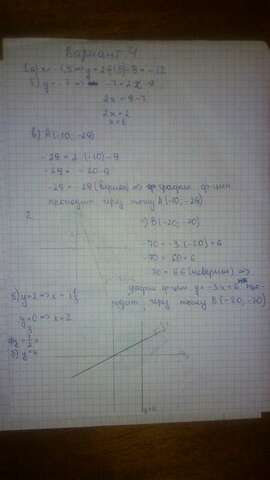 Вариант 4
1.а) x = -1,5 => y = 2*(1,5)-9 = -12
б) y = -7 => -7 = 2x - 9
2x = 9-7
2x = 2
x = 1
в) A(-10; -29)
-29 = 2·(-10)-9
-29 = -20-9
-29 = -29 (верно) => график ф-ции
проходит через точку A(-10; -29)
2.
г) B(-20; -70)
-70 = -3·(-20)+6
-70 = 60+6
70 = 66 (неверно) =>
график ф-ции y = -3x+6 не
через точку B(-20, -70)
б) y=2 => x = 1
y=0 => x=2
3